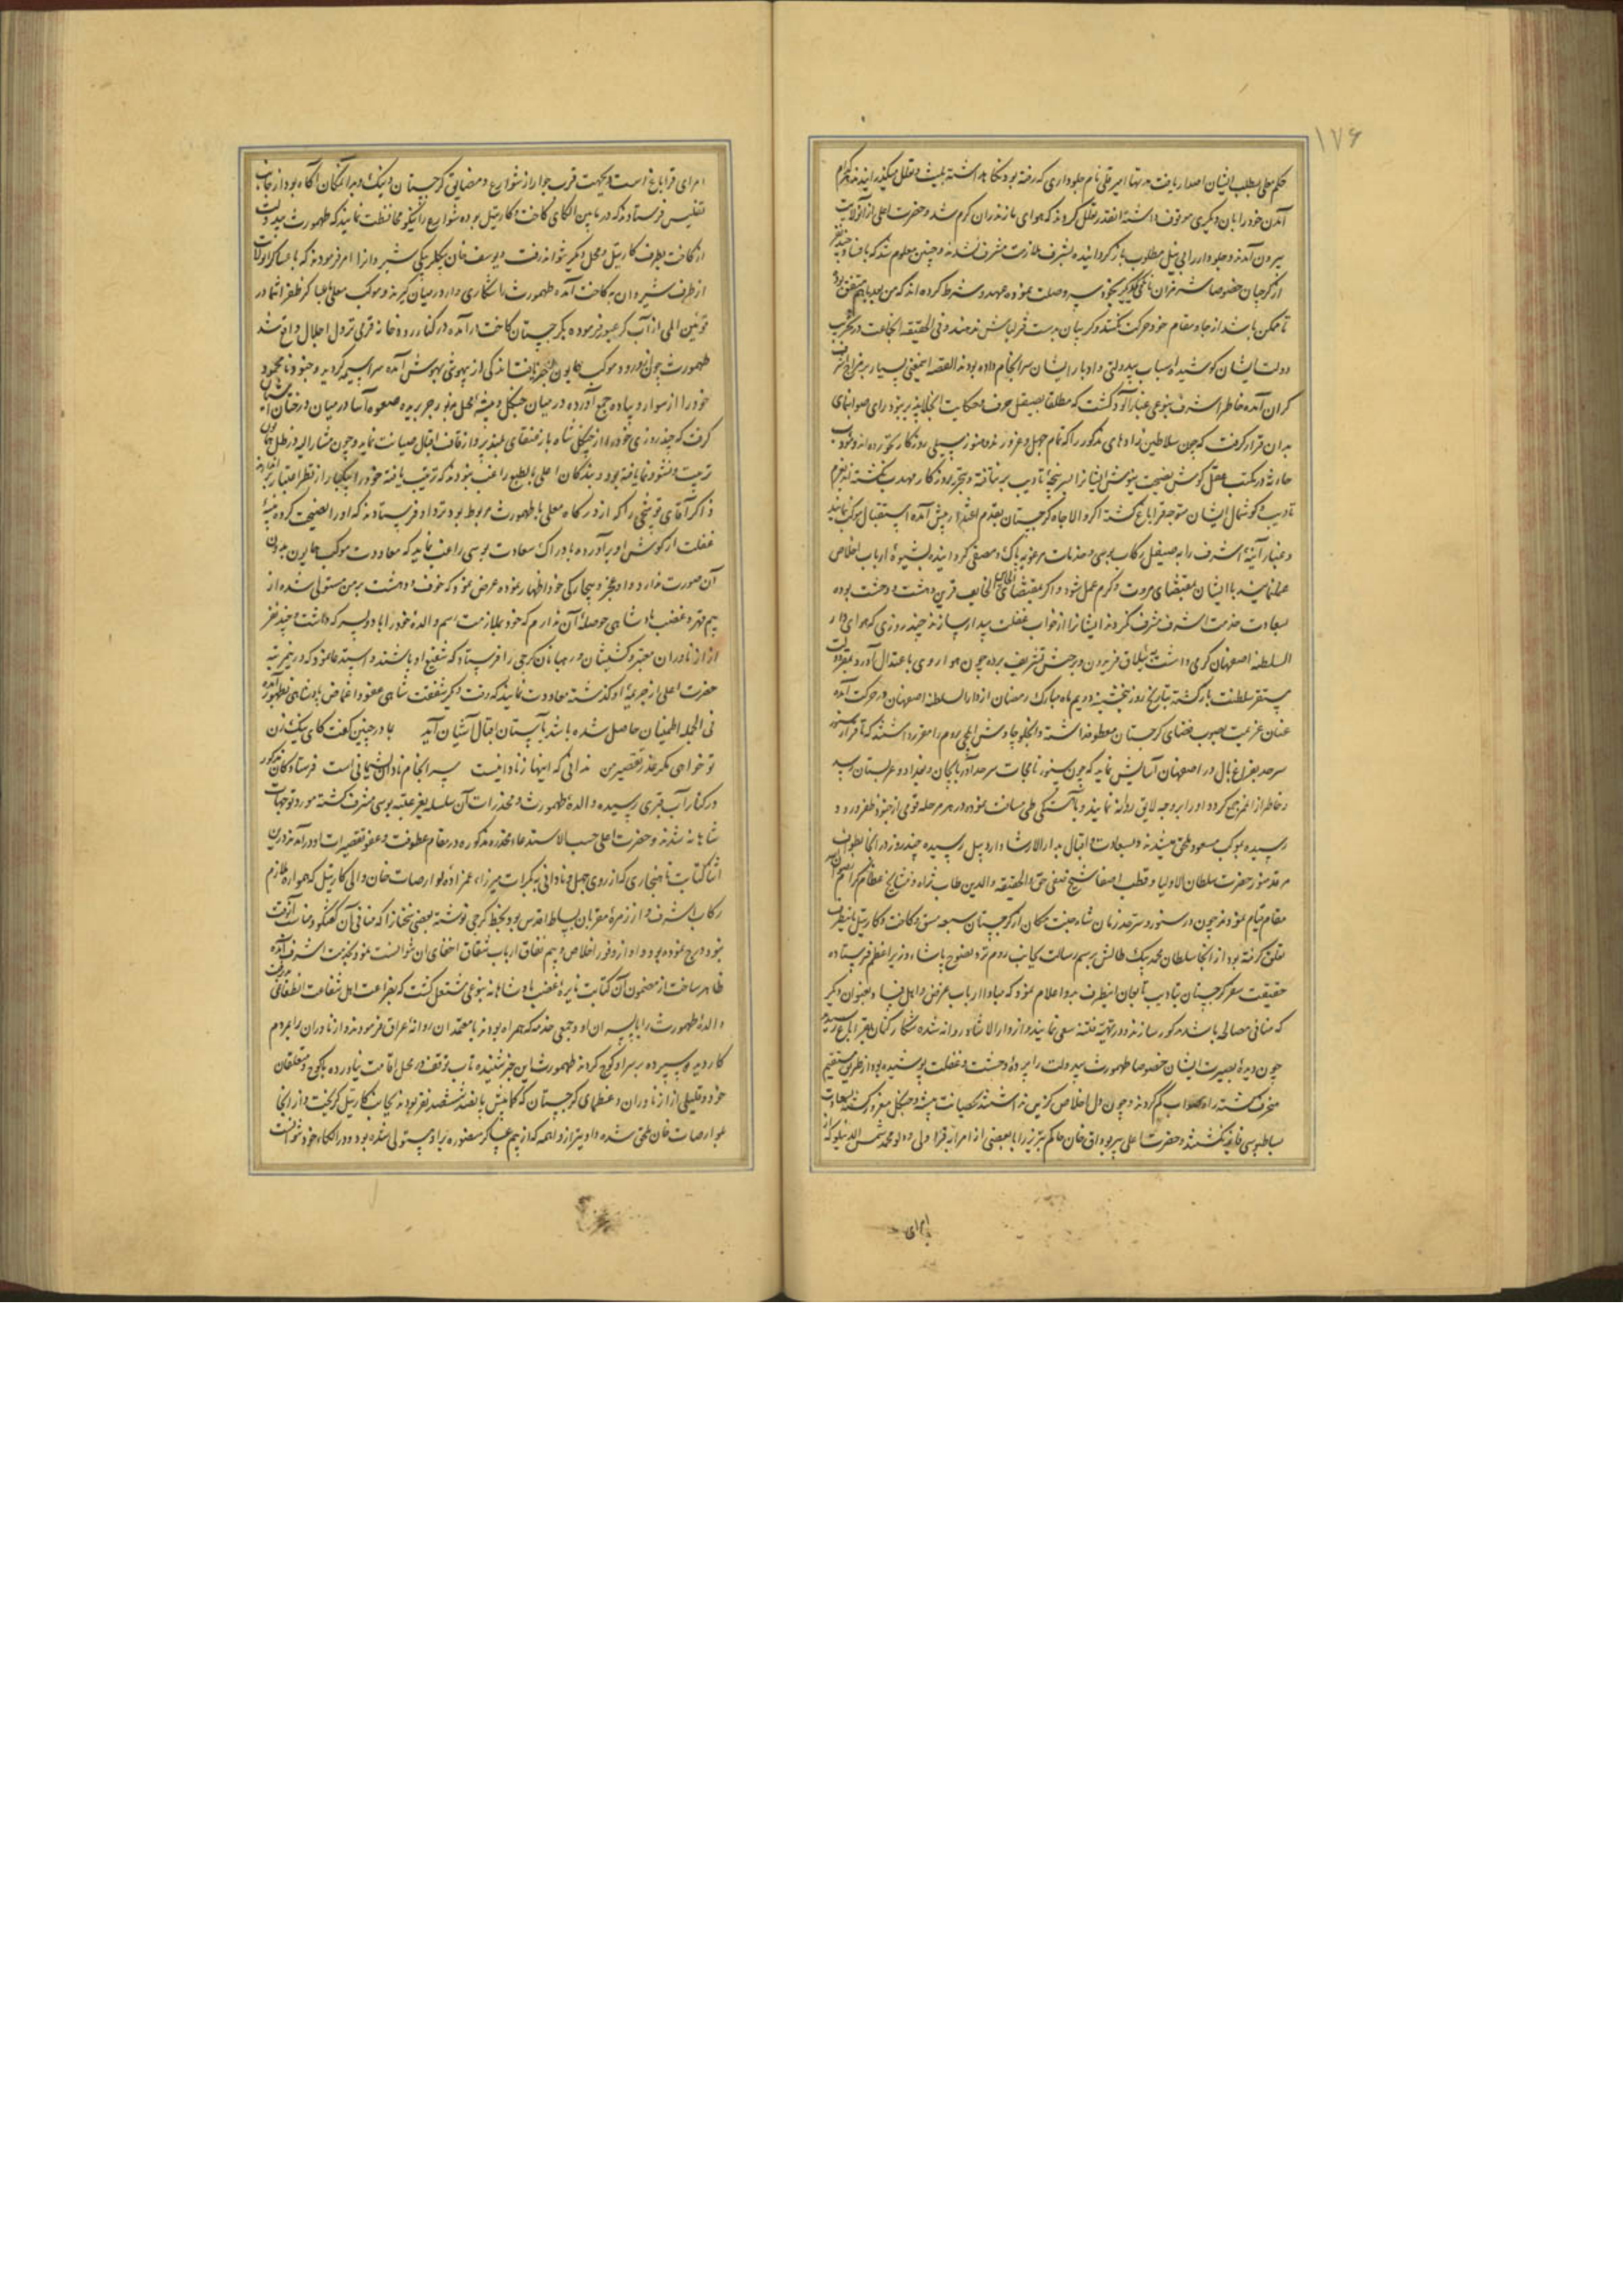 ۱۷۶
حکم معلی بطلب ایشان اصدار یافت مرتبها امیر قلی نام جلوداری که رفته بود نگاه داشته بلیت و لعل میگذرانیدند هر کدام
آمدن خود را بان دیگری موقوف داشته انقدر تعلل کردند که هوای مازندران گرم شد و حضرت اعلی از آنولایت
بیرون آمدند و جلودار را بی نیل مطلوب بازگردانیده بشرف ملازمت مشرف نشدند و چنین معلوم شد که با
از گرجیان خصوصا شهزبان با یکدیگر وصلت نموده عهد و شرط کرده اند که من بعد باهم متفق بوده
تا ممکن باشد از جا و مقام خود حرکت نکنند و گریبان بدست قزلباش ندهند و فی الحقیقه انجماعت در تخریب
دولت ایشان کوشیده اسباب بیدولتی و ادبار ایشان سرانجام داده بودند القصه اینمعنی بسیار بر مزاج اشرف
گران آمده خاطر اشرف بنوعی غبارآلود گشت که مطلقا بصیقل حرف و حکایت انجلاپذیر نبود رای صوابنمای
بدان قرار گرفت که چون سلاطین زادهای مذکور را که تمام جهل و غرورند و هنوز سیلی روزگار نخورده اند و مؤدب
حادثه در مکتب عقل گوش نصیحت نیوش ایشانرا بسرپنجه تادیب برنتافته و بتجربه روزگار مهذب نگشته اند بعزم
تادیب و گوشمال ایشان متوجه قراباغ گشته اگر والاجاه گرجستان بقدم اعتذار پیش آمده استقبال موکب نمایند
و غبار آینه اشرف را بصیقل رکاب بوسی و خدمات مرغوبه پاک و مصفی گردانیده بشیوه ارباب اخلاص
عمل نمایند با ایشان بمقتضای مروت و کرم عمل شود و اگر بمقتضای الخاین خایف قرین دهشت و وحشت بوده
بسعادت خدمت اشرف مشرف نگردند ایشانرا از خواب غفلت بیدار سازند چند روزی که هوای دار
السلطنه اصفهان گرمی داشت به ییلاق فریدون و برجش تشریف برده چون هوا روی باعتدال آورد بمقر دولت
مستقر سلطنت بازگشته بتاریخ روز پنجشنبه دویم ماه مبارک رمضان از دارالسلطنه اصفهان در حرکت آمده
عنان عزیمت بصوب فضای گرجستان معطوف داشته و انجلو چاوش ایلچی روم را مقرر داشتند که تا قرار سنور
سرحد بفراغ بال در اصفهان آسایش نماید که چون سنور نامجات سرحد آذربایجان و بغداد و عربستان رسد
و خاطر از امر جمع گردد او را بر وجه لایق روانه نمایند و بآهستگی طی مسافت نموده در هر مرحله قومی از جنود ظفر ورود
رسیده بموکب مسعود ملحق میشدند و بسعادت و اقبال بدارالارشاد اردبیل رسیده چند روز در آنجا بطواف
مرقد منور حضرت سلطان الاولیا و قطب الاصفیا شیخ صفی حق و الحقیقه والدین طاب ثراه و مشایخ عظام کرام
مقام قیام نمودند چون در سنور و سرحد زمان شاه جنت مکان از گرجستان سبعه مسق و کاخت و کارتیل باینطرف
تعلق گرفته بود از آنجا سلطان محمد بیک طالش برسم رسالت بجانب روم نزد نصوح پاشا وزیر اعظم فرستاده
حقیقت سفر گرجستان بتادیب تابعان اینطرف بدو اعلام نمود که مبادا ارباب غرض و اهل فساد بعنوان دیگر
که منافی مصالح باشد مذکور سازند و در تهیه فتنه سعی نمایند و از دارالارشاد روانه شده شکار کنان بقراباغ رسیدند
چون دیده بصیرت ایشان خصوصا طهمورث بیدولت را پرده وحشت و غفلت پوشیده بود از طریق مستقیم
منحرف گشته راه صواب گم کردند و چون دل اخلاص گزین نداشتند بحصانت بیشه و جنگل مغرور گشته بسعادت
بساطبوسی فایز نگشتند و حضرت اعلی پیربوداق خان حاکم تبریز را با بعضی از امرا به قراولی و محمد شمس الدینلو که از
امرای
امرای قراباغ است و بجهت قرب جوار از شوارع و مضایق گرجستان و نیک و بد آنمکان آگاه بود از جانب
تفلیس فرستادند که در مابین الکای کاخت و کارتیل بوده شوارع را نیکو محافظت نمایند که طهمورث بیدولت
از کاخت بطرف کارتیل و محل دیگر نتواند رفت و یوسف خان بیگلربیگی شیروانرا امر فرمودند که با عساکر
از طرف شیروان به کاخت آمده طهمورث را شکاری وار در میان گیرند و موکب معلی با عساکر ظفر اثما در
توفیق الهی از آب کر عبور فرموده بگرجستان کاخت درآمده در کنار رودخانه قرقی نزول اجلال واقع شد
طهمورث چون از ورود موکب همایون خبر یافت اندکی از بیهوشی بهوش آمده سراسیمه گردید و جنود نامحدود
خود را از سوار و پیاده جمع آورده در میان جنگل و بیشه محل بزور جر بریده صعوه آسا در میان درختان آشیان
گرفت که چند روزی خود را از چنگل شاه باز عنقای بلند پرواز قاف اقبال صیانت نماید و چون مشارالیه در ظل همایون
تربیت و نشو و نما یافته بود و بندگان اعلی بالطبع راغب نبودند که تربیت یافته خود را بیکبار از نظر اعتبار
ذاکر آقای قوشچی را که از درگاه معلی با طهمورث مربوط بود نزد او فرستادند که او را نصیحت کرده پنبه
غفلت از گوش او برآورده بادراک سعادت بوسی راغب نماید که معاودت موکب همایون بدون
آن صورت ندارد و او عجز و بیچارگی خود اظهار نموده عرض نمود که خوف و دهشت بر من مستولی شده از
بیم قهر و غضب پادشاهی حوصله آن ندارم که خود بملازمت رسم والده خود را با دو پسر که داشت و چند نفر
از ازناوران معتبر و کشیشان و رهبانان گرجی را فرستاد که شفیع او باشند و استدعا نمود که در این مرتبه
حضرت اعلی از جریمه او گذشته معاودت نمایند که وقت دیگر شفقت شاهی عفو و اغماض پادشاهی بظهور آمده
فی الجمله اطمینان حاصل شده باشد بآستان اقبال آشیان آید باو چنین گفت کای نیک زن
تو خواهی مگر عذر تقصیر من ندانی که اینها ز نادانیست سرانجام نادان پشیمانی است فرستادگان مذکور
در کنار آب قبری رسیده والده طهمورث و مخدرات آن سلسله بعز عتبه بوسی مشرف گشته مورد توجهات
شاهانه شدند و حضرت اعلی حسب الاستدعاء مخدره مذکوره در مقام عطوفت و عفو تقصیرات او درآمدند در این
اثنا کتابت ناهنجاری که از روی جهل و نادانی به بکرات میرزا، عمزاده لوارصات خان والی کارتیل که همواره ملازم
رکاب اشرف و از زمره مقربان بساط اقدس بود بخط گرجی نوشته بعضی سخنانرا که منافی آن گفتگو و مناسب آنوقت
نبود درج نموده بود و او از وفور اخلاص و بیم نفاق ارباب شقاق اخفای آن نتوانست نمود بخدمت اشرف آمده
ظاهر ساخت از مضمون آن کتابت نایره غضب پادشاهانه بنوعی مشتعل گشت که بضراعت اهل شفاعت انطفا نمی پذیرفت
والده طهمورث را با پسران او و جمعی خدمه که همراه بودند با معتمدان روانه عراق فرمودند و ازناوران را بمردم
کاردیده سپرده بر سر او کوچ کردند طهمورث این خبر شنیده تاب توقف در محل اقامت نیاورده با کوچ و متعلقان
خود و قلیلی از ازناوران و عظمای گرجستان که کمابیش پانصد ششصد نفر بودند بجانب کارتیل گریخت و از آنجا
بلوارصات خان ملحق شده و او نیز از واهمه که از بیم عساکر منصوره بر او مستولی شده بود در الکاء خود نتوانست